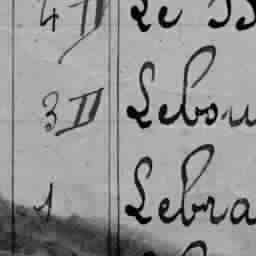 4 II Le B
3 II Lebou
1 Lebra